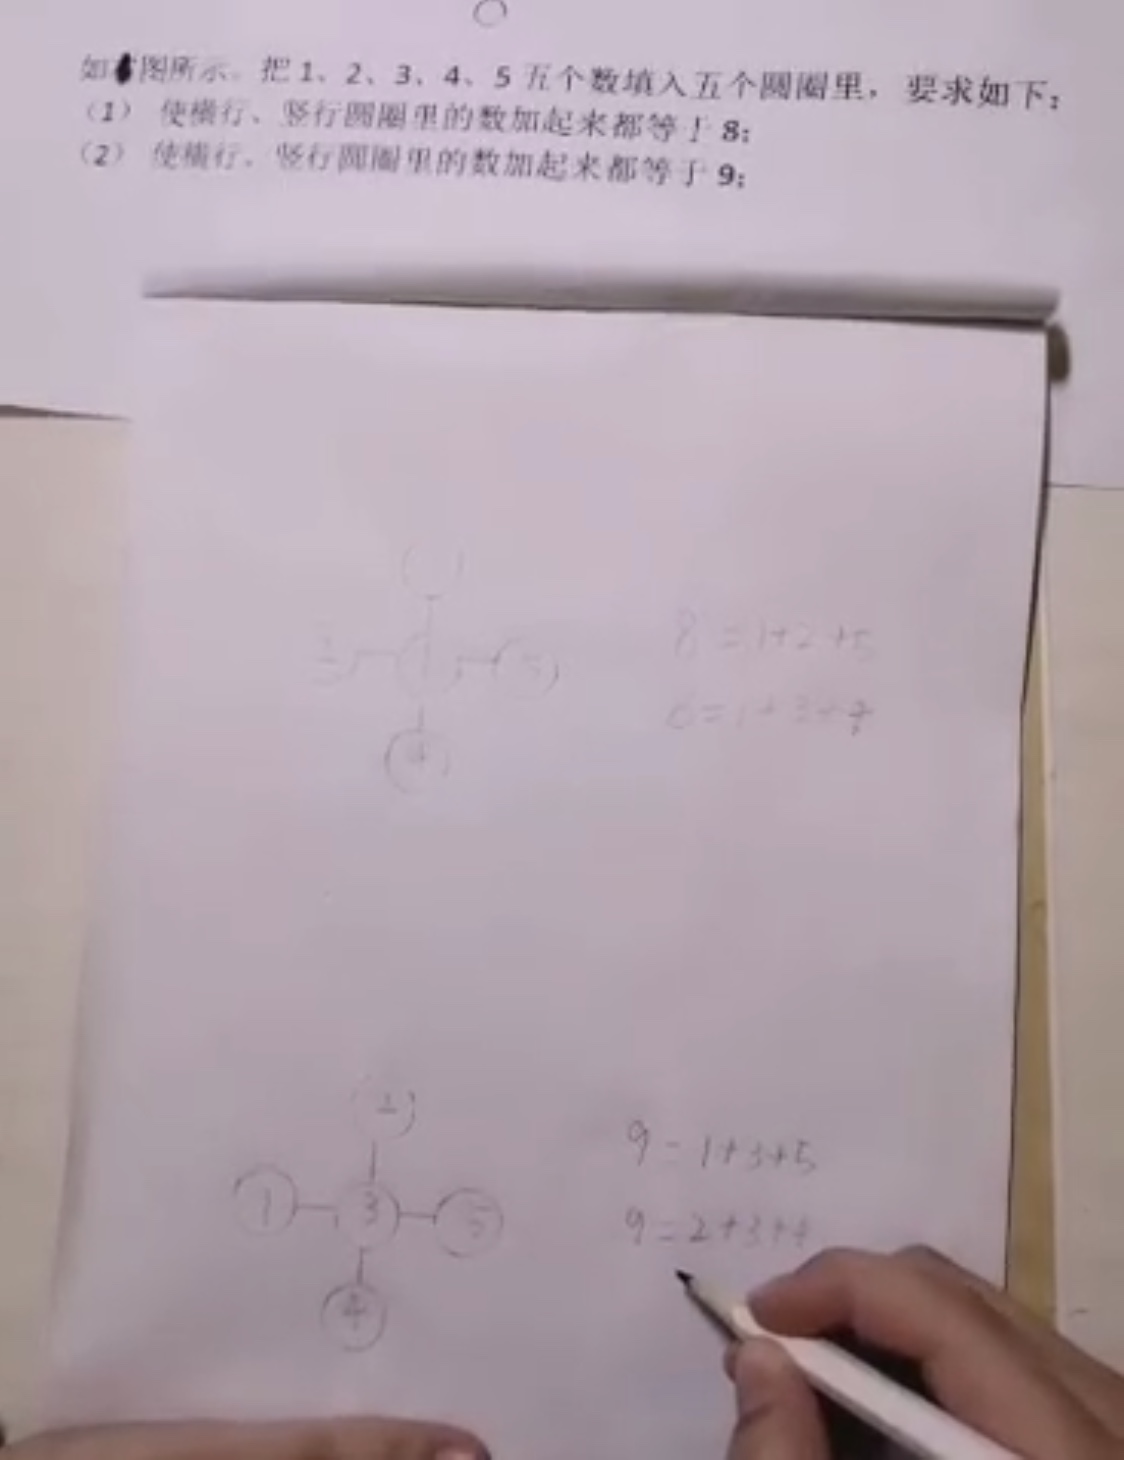 如图所示。把1、2、3、4、5五个数填入五个圆圈里，要求如下：
（1） 使横行、竖行圆圈里的数加起来都等于8；
（2） 使横行、竖行圆圈里的数加起来都等于9；
1 5
4
8=1+2+5
8=1+3+4
2
1 3 5
4
9=1+3+5
9=2+3+4